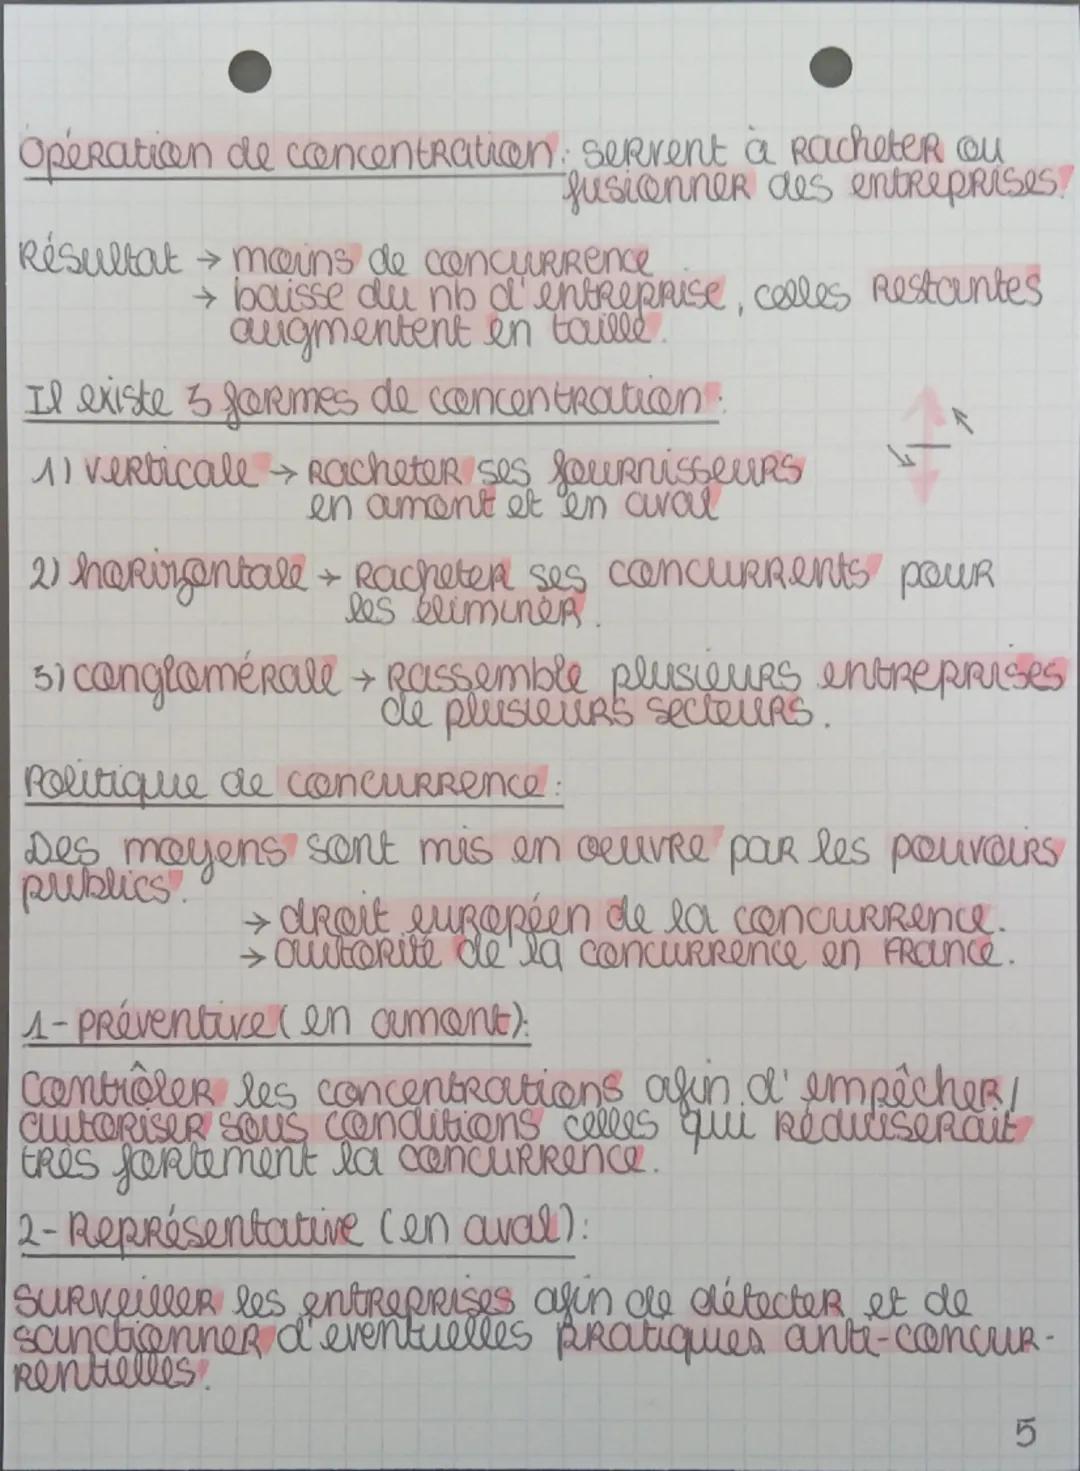 Opération de concentration : servent à racheter ou
fusionner des entreprises.
Résultat → moins de concurrence
→ baisse du nb d'entreprise, celles restantes
augmentent en taille.
Il existe 3 formes de concentration :
1) verticale → racheter ses fournisseurs
en amont et en aval
2) horizontale → racheter ses concurrents pour
les éliminer.
3) conglomérale → rassemble plusieurs entreprises
de plusieurs secteurs.
Politique de concurrence :
Des moyens sont mis en oeuvre par les pouvoirs
publics.
→ droit européen de la concurrence.
→ autorité de la concurrence en France.
1- préventive (en amont):
Contrôler les concentrations afin d'empêcher/
autoriser sous conditions celles qui réduiserait
très fortement la concurrence.
2- Représentative (en aval):
Surveiller les entreprises afin de détecter et de
sanctionner d'éventuelles pratiques anti-concur-
rentielles.
5